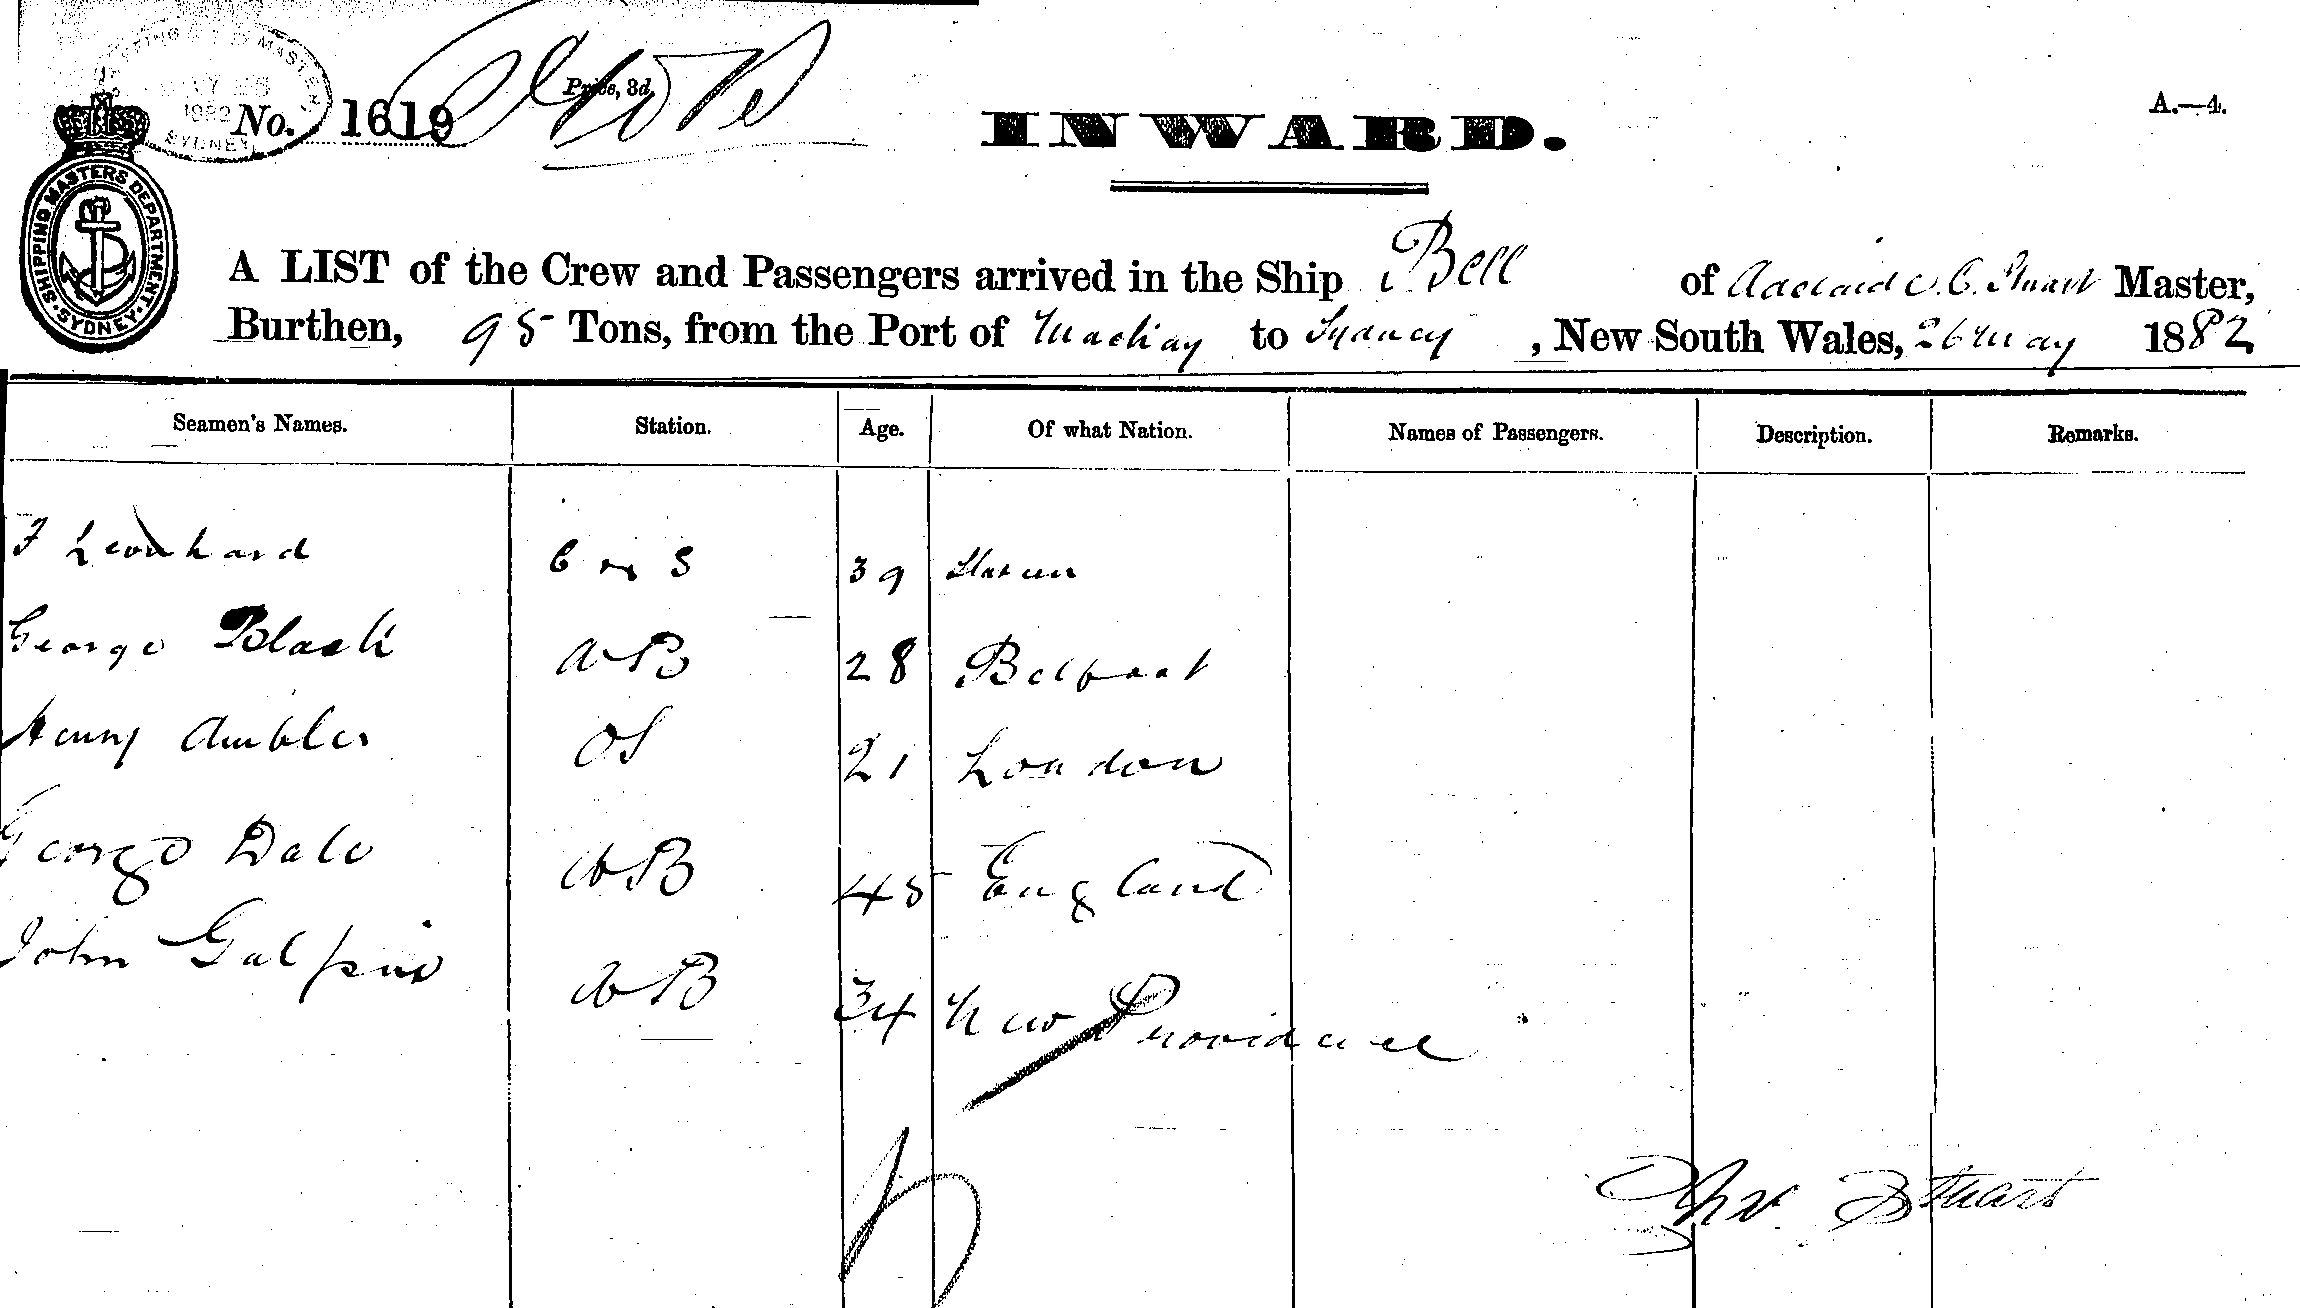 SHIPPING MASTER
MAY 26
1882
SYDNEY
No. 1619
Price, 3d
INWARD.
A.—4.
SHIPPING MASTERS DEPARTMENT SYDNEY
A LIST of the Crew and Passengers arrived in the Ship Bell of Adelaide C. Stuart Master,
Burthen, 95 Tons, from the Port of Mackay to Sydney, New South Wales, 26 May 1882
Seamen's Names. Station. Age. Of what Nation. Names of Passengers. Description. Remarks.
F Leonhard 39
George Black AB 28 Belfast
Henry Ambler OS 21 London
George Dale AB 45 England
John Galpin AB 34 New Providence
Stuart